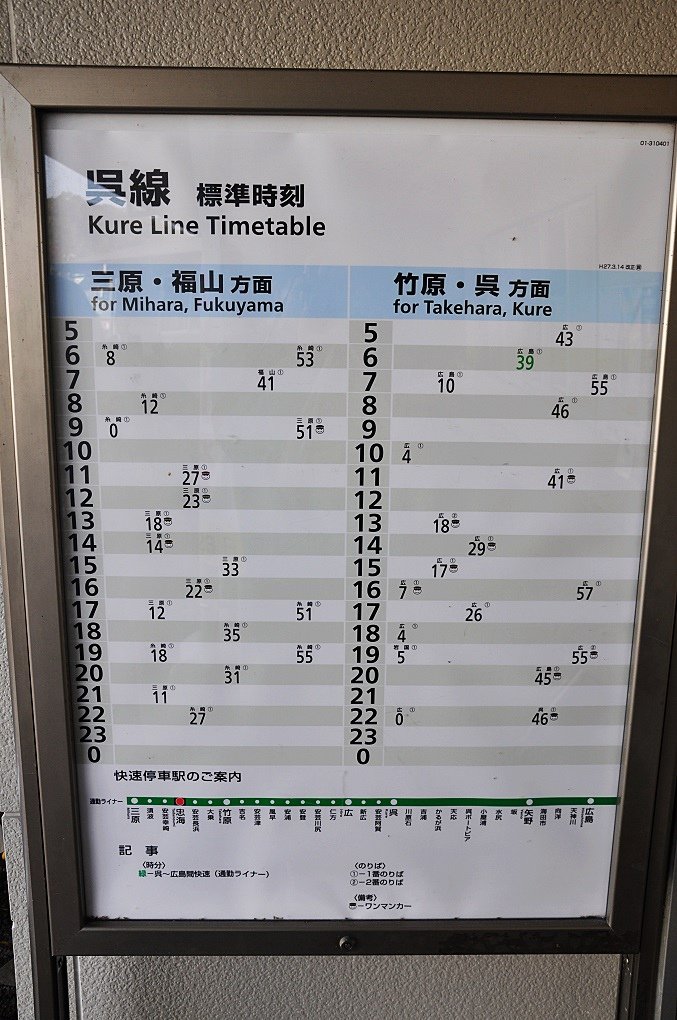 01-310401
呉線 標準時刻
Kure Line Timetable
H27.3.14 改正
三原・福山 方面 竹原・呉 方面
for Mihara, Fukuyama for Takehara, Kure
5 5 広① 43
6 糸崎① 8 糸崎① 53 6 広島① 39
7 福山① 41 7 広島① 10 広島① 55
8 糸崎① 12 8 広① 46
9 糸崎① 0 三原① 51 9
10 10 広① 4
11 三原① 27 11 広① 41
12 三原① 23 12
13 三原① 18 13 広② 18
14 三原① 14 14 広① 29
15 三原① 33 15 広① 17
16 三原① 22 16 広① 7 広① 57
17 三原① 12 糸崎① 51 17 広① 26
18 糸崎① 35 18 広① 4
19 糸崎① 18 糸崎① 55 19 岩国① 5 広② 55
20 糸崎① 31 20 広島① 45
21 三原① 11 21
22 糸崎① 27 22 広① 0 呉① 46
23 23
0 0
快速停車駅のご案内
通勤ライナー
三原 須波 安芸幸崎 忠海 安芸長浜 大乗 竹原 吉名 安芸津 風早 安浦 安登 安芸川尻 仁方 広 新広 安芸阿賀 呉 川原石 吉浦 かるが浜 天応 呉ポートピア 小屋浦 水尻 坂 矢野 海田市 向洋 天神川 広島
記 事
〈時分〉 〈のりば〉
緑-呉～広島間快速（通勤ライナー） ①-1番のりば
②-2番のりば
〈備考〉
-ワンマンカー